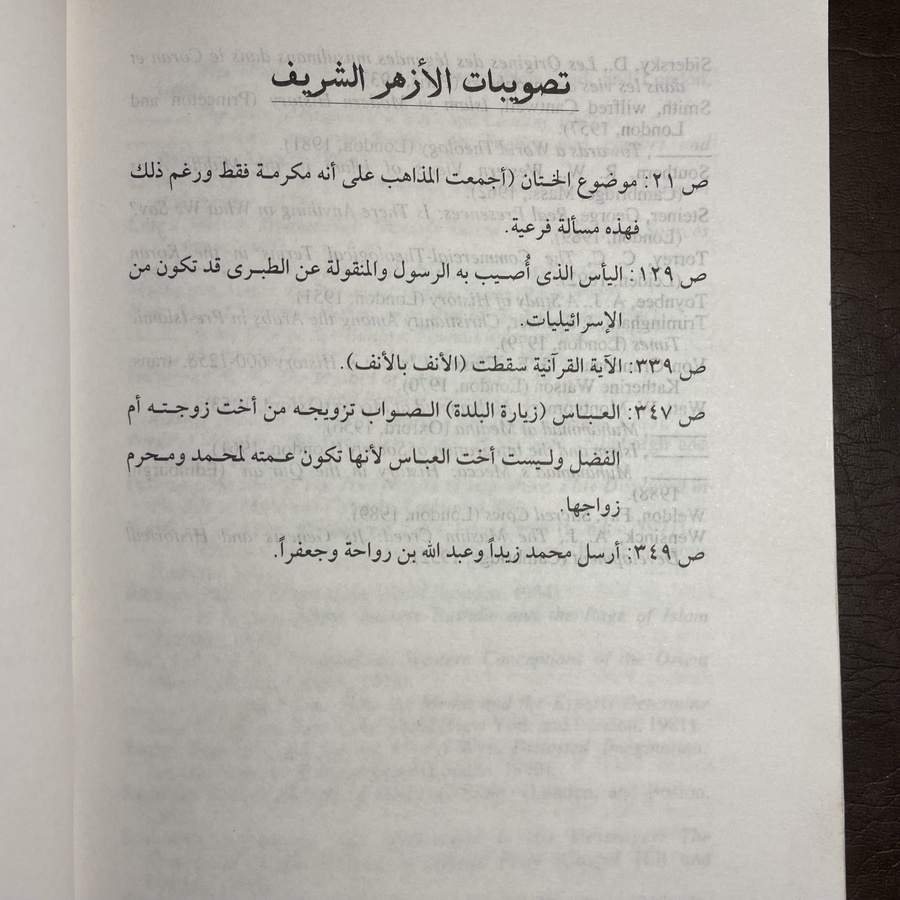 تصويبات الأزهر الشريف
ص ٢١: موضوع الختان (أجمعت المذاهب على أنه مكرمة فقط ورغم ذلك
فهذه مسألة فرعية.
ص ١٢٩: اليأس الذى أُصيب به الرسول والمنقولة عن الطبرى قد تكون من
الإسرائيليات.
ص ٣٣٩: الآية القرآنية سقطت (الأنف بالأنف).
ص ٣٤٧: العباس (زيارة البلدة) الصواب تزويجه من أخت زوجته أم
الفضل وليست أخت العباس لأنها تكون عمته لمحمد ومحرم
زواجها.
ص ٣٤٩: أرسل محمد زيداً وعبد الله بن رواحة وجعفراً.